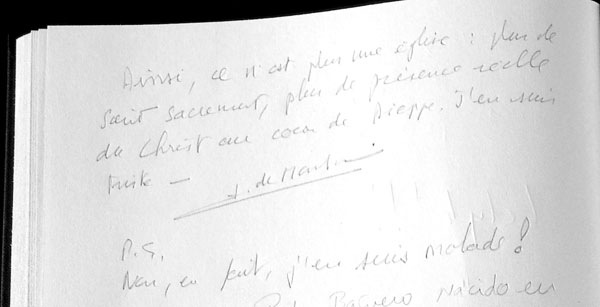 Ainsi, ce n'est plus une église : plus de
Saint Sacrement, plus de présence réelle
du Christ au coeur de Dieppe. J'en suis
triste —
J. de
P.S.
Non, en fait, j'en suis malade !
nacido en